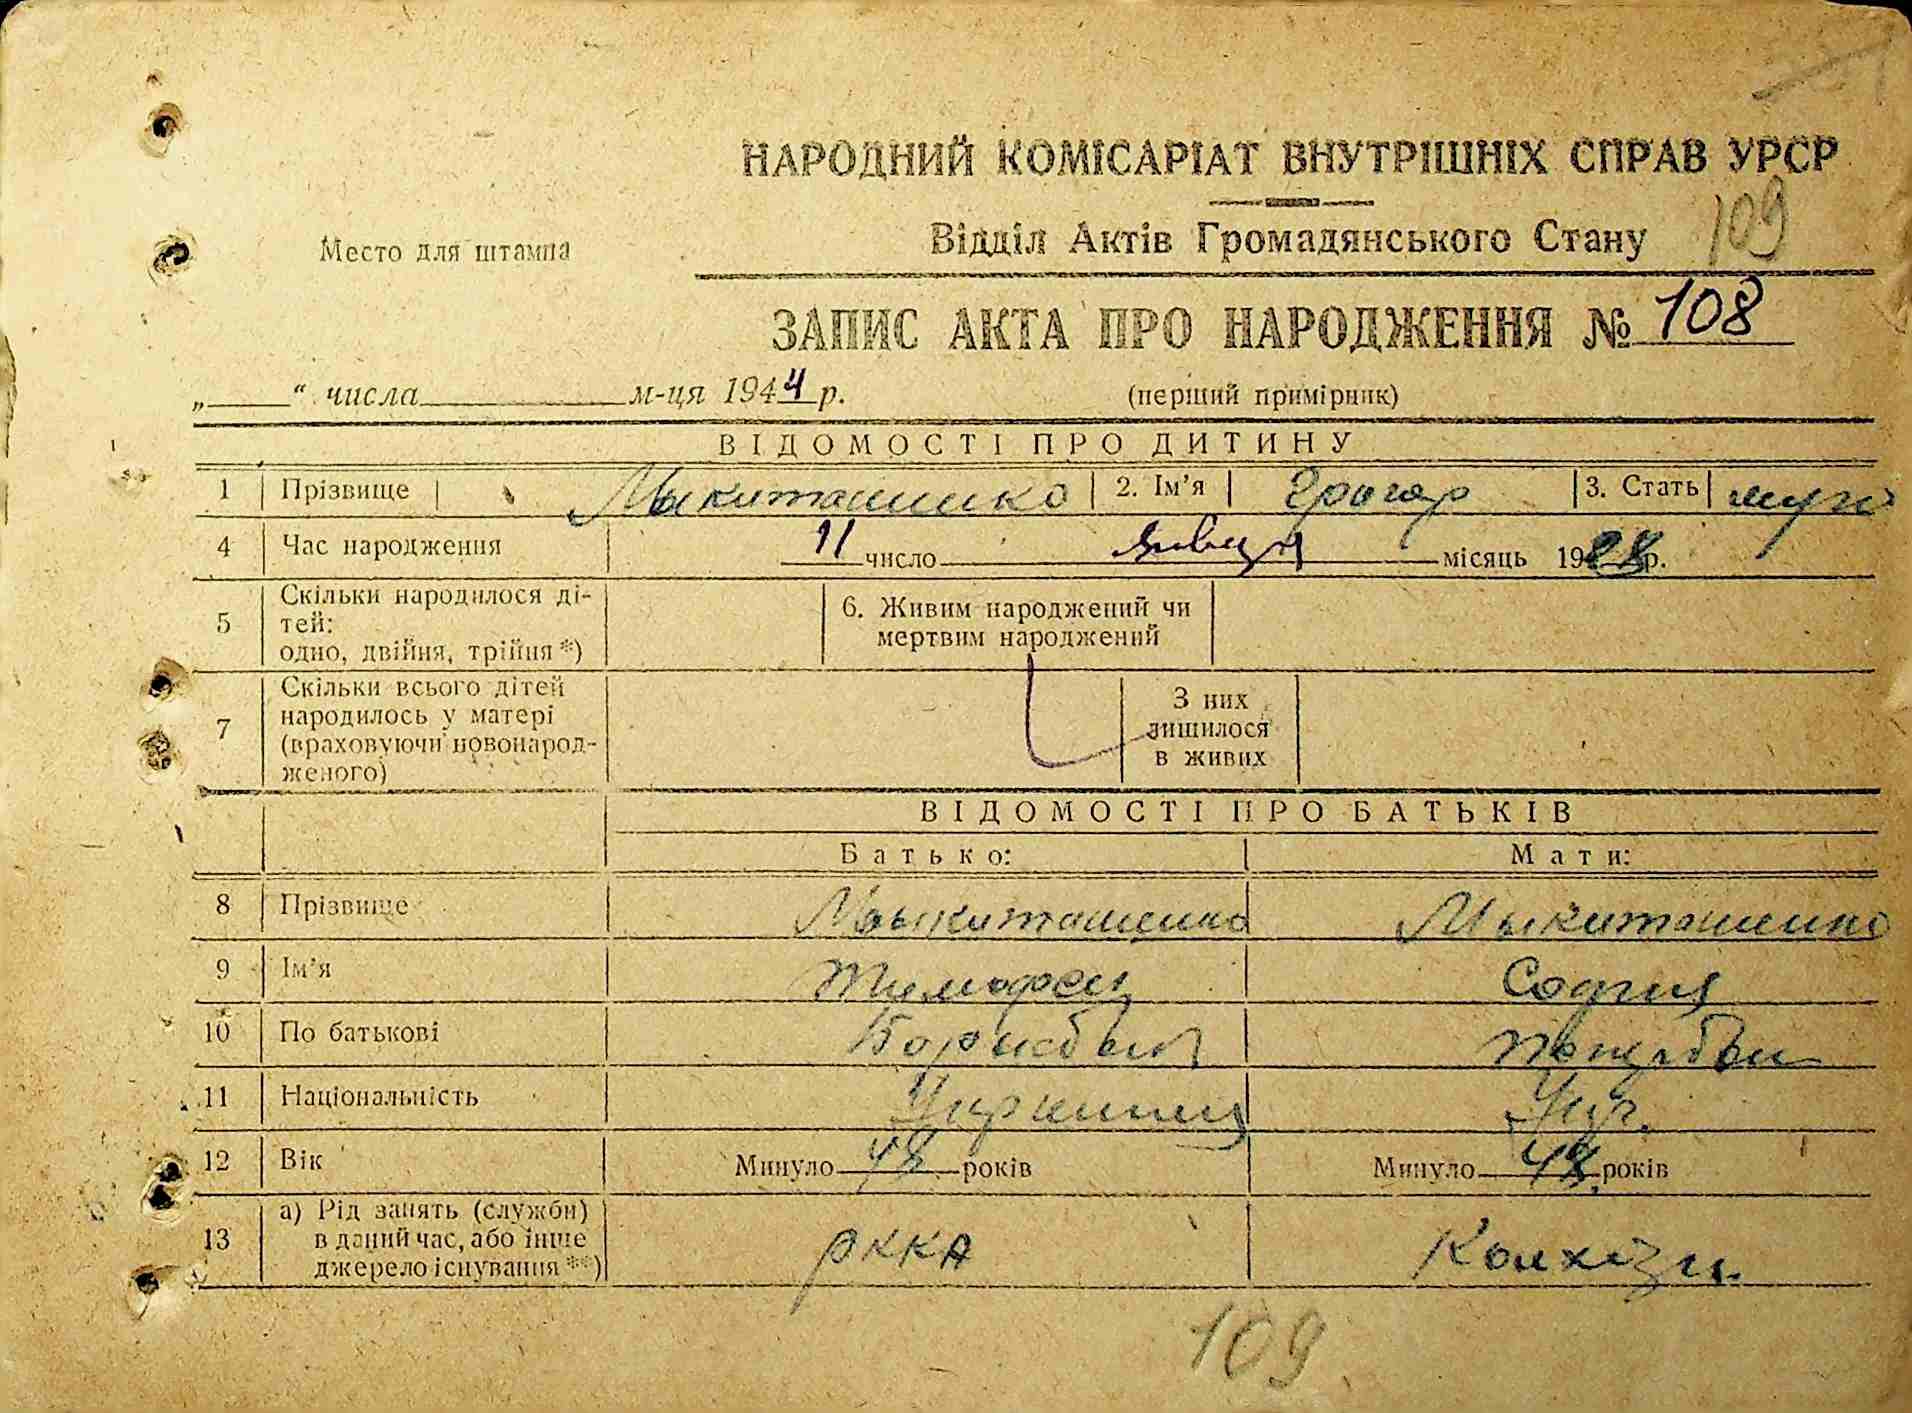 НАРОДНИЙ КОМІСАРІАТ ВНУТРІШНІХ СПРАВ УРСР
109
Место для штампа
Відділ Актів Громадянського Стану
ЗАПИС АКТА ПРО НАРОДЖЕННЯ № 108
„ “ числа м-ця 1944 р. (перший примірник)
ВІДОМОСТІ ПРО ДИТИНУ
1 Прізвище 2. Ім’я 3. Стать
4 Час народження 11 число января місяць 19 р.
5 Скільки народилося ді-
тей:
одно, двійня, трійня *)
6. Живим народжений чи
мертвим народжений
7 Скільки всього дітей
народилось у матері
(враховуючи новонарод-
женого)
З них
лишилося
в живих
ВІДОМОСТІ ПРО БАТЬКІВ
Батько: Мати:
8 Прізвище
9 Ім’я Тимофей София
10 По батькові
11 Національність Укр.
12 Вік Минуло 48 років Минуло років
13 а) Рід занять (служби)
в даний час, або інше
джерело існування **)
РККА
109